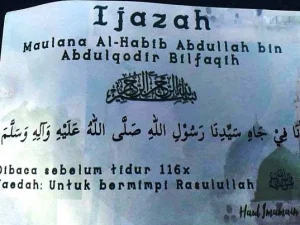 Ijazah
Maulana Al-Habib Abdullah bin
Abdulqodir Bilfaqih
بسم الله الرحمن الرحيم
نَا فِيْ جَاهِ سَيِّدِنَا رَسُوْلِ اللهِ صَلَّى اللهُ عَلَيْهِ وَآلِهِ وَسَلَّمَ
Dibaca sebelum tidur 116x
Faedah: Untuk bermimpi Rasulullah